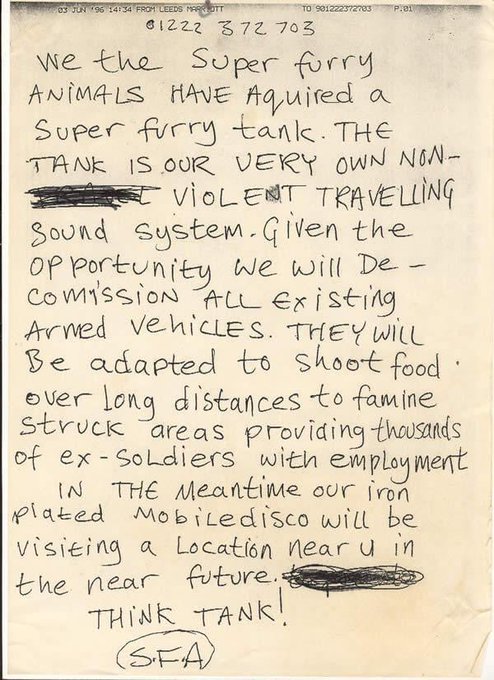 03 JUN '96 14:34 FROM LEEDS MARRIOTT TO 901222372703 P.01
01222 372 703
We the Super furry
ANIMALS HAVE Aquired a
Super furry tank. THE
TANK IS OUR VERY OWN NON-
VIOLENT TRAVELLING
Sound system. Given the
opportunity we will De-
comission ALL Existing
Armed vehicles. THEY WILL
Be adapted to shoot food
over long distances to famine
struck areas providing thousands
of ex-soldiers with employment
IN THE Meantime our iron
plated Mobiledisco will be
visiting a Location near u in
the near future.
THINK TANK!
S.F.A